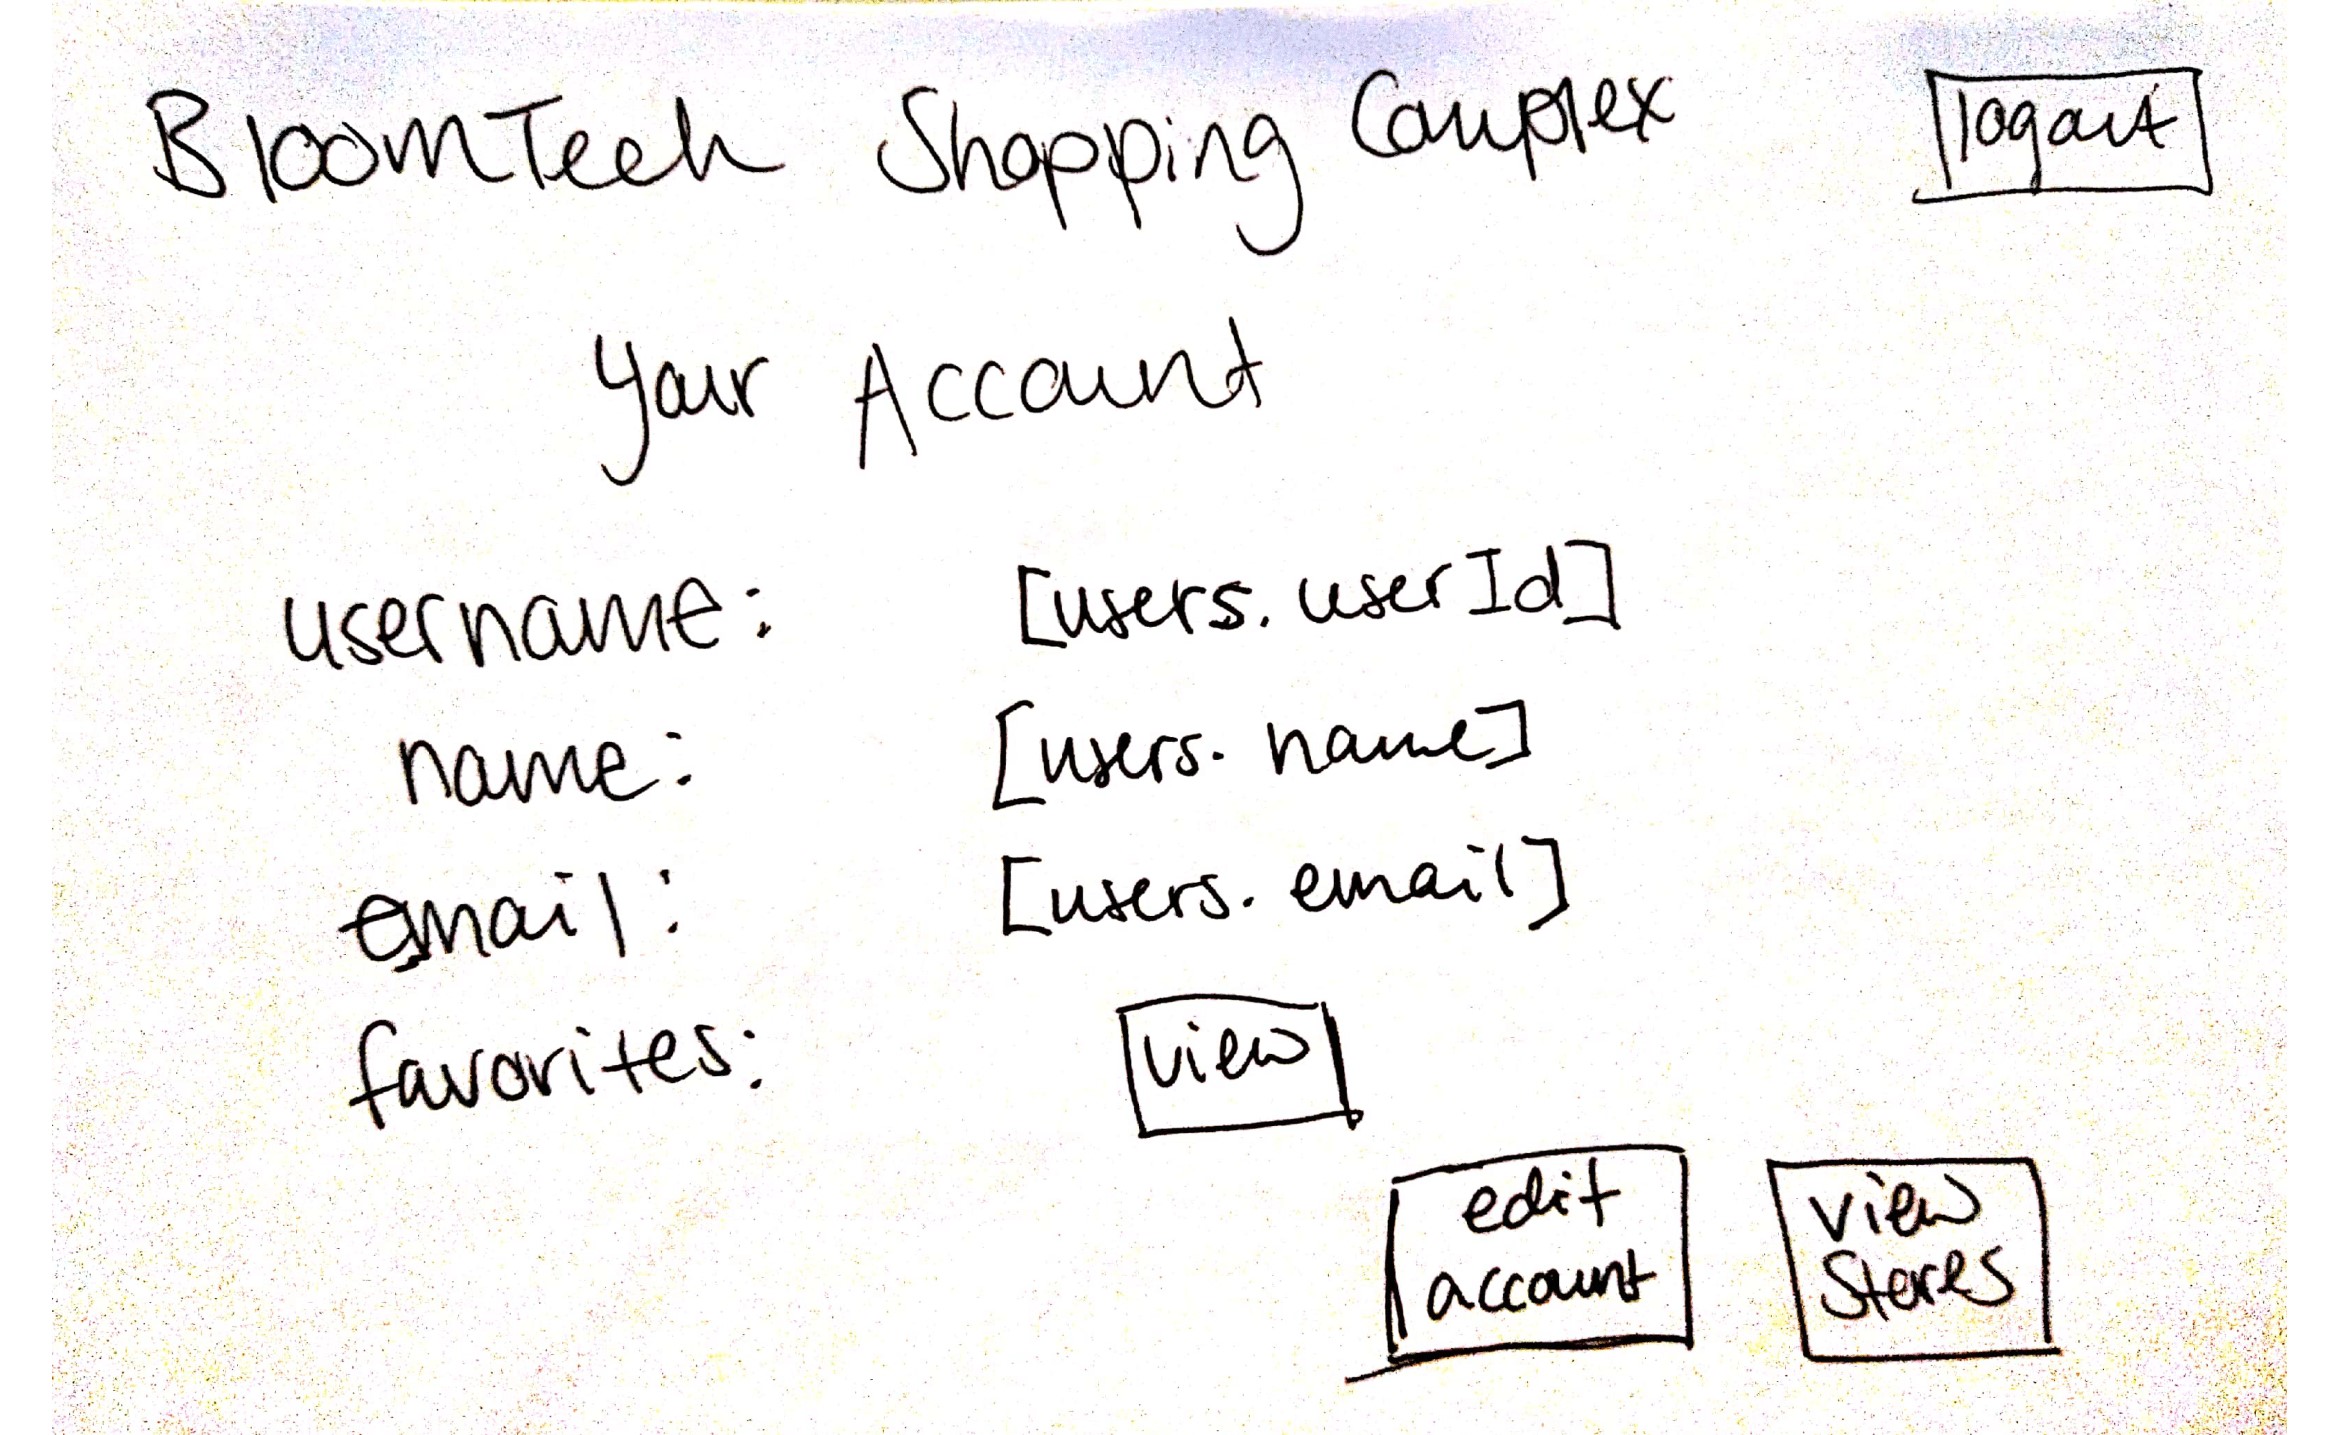 BloomTech Shopping Complex logout
Your Account
username: [users.userId]
name: [users.name]
email: [users.email]
favorites: view
edit account
view stores